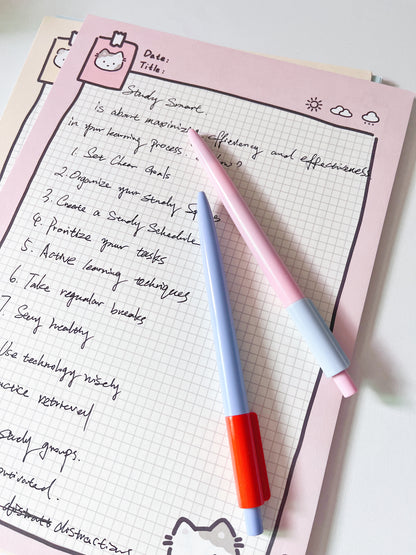 Date:
Title:
Study Smart.
is about maximizing efficiency and effectiveness
in your learning process. How?
1. Set Clear Goals
2. Organize your study Spaces
3. Create a Study Schedule
4. Prioritize your tasks
5. Active learning techniques
6. Take regular breaks
7. Stay healthy
Use technology wisely
retrieval
study groups.
distractions